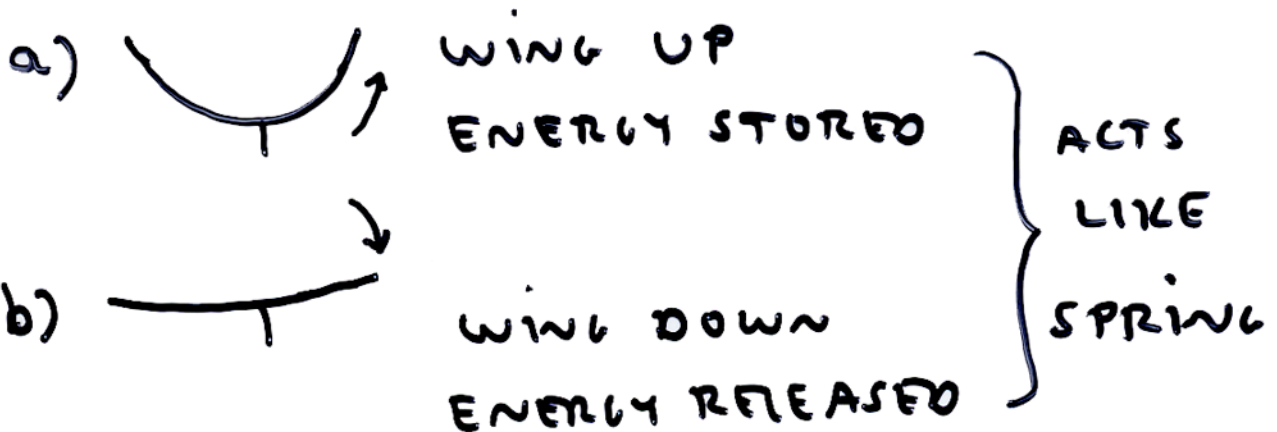 a) WING UP
ENERGY STORED
b) WING DOWN
ENERGY RELEASED
ACTS
LIKE
SPRING